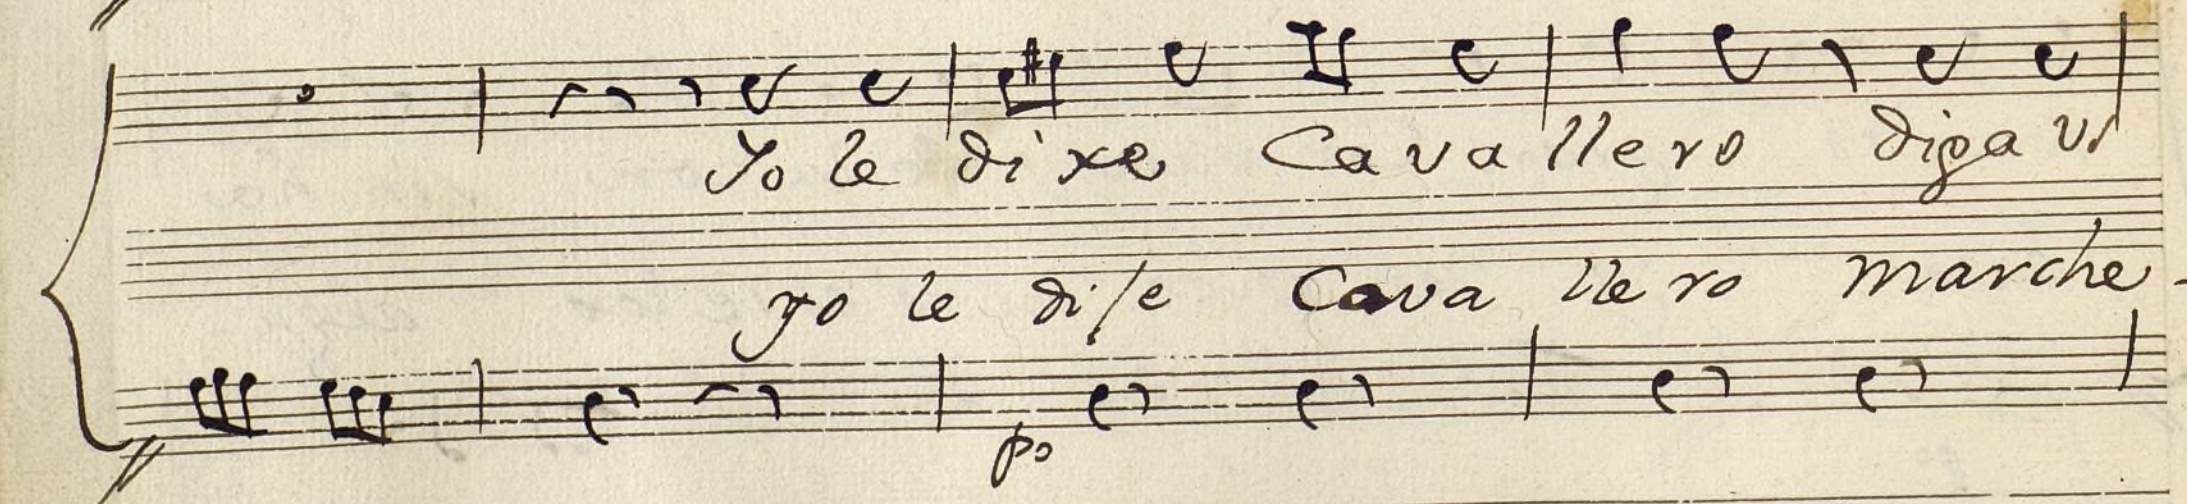 Yo le dixe Cavallero diga vs
yo le dise Cavallero marche-
po